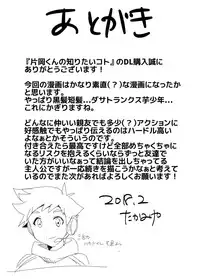 あとがき
『片岡くんの知りたいコト』のDL購入誠に
ありがとうございます！
今回の漫画はかなり素直(？)な漫画になったか
と思います。
やっぱり黒髪短髪…ダサトランクス芋少年…
これにかぎりますね。
どんなに仲いい親友でも多少(？)アクションに
好感触でもやっぱり伝えるのはハードル高い
よなぁとかそういうので、
付き合えたら最高ですけど居づらくなるかも
なるリスクを抱えるくらいならずっと友達で
いた方がいいなぁって結論を出しちゃってる
主人公ですが一応続きを描こうかなぁと考えて
いるのでまた次があればよろしくお願いします！
2018.2